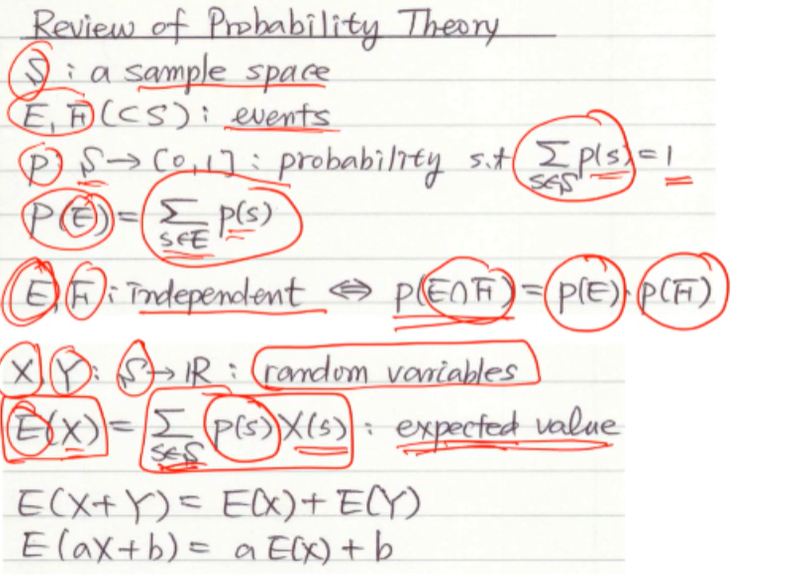 Review of Probability Theory
S : a sample space
E, F (⊂ S) : events
p: S → [0,1] : probability s.t ∑_{s∈S} p(s) = 1
P(E) = ∑_{s∈E} p(s)
E, F : independent ⇔ p(E∩F) = p(E)·p(F)
X, Y : S → ℝ : random variables
E(X) = ∑_{s∈S} p(s) X(s) : expected value
E(X+Y) = E(X) + E(Y)
E(aX+b) = a E(X) + b